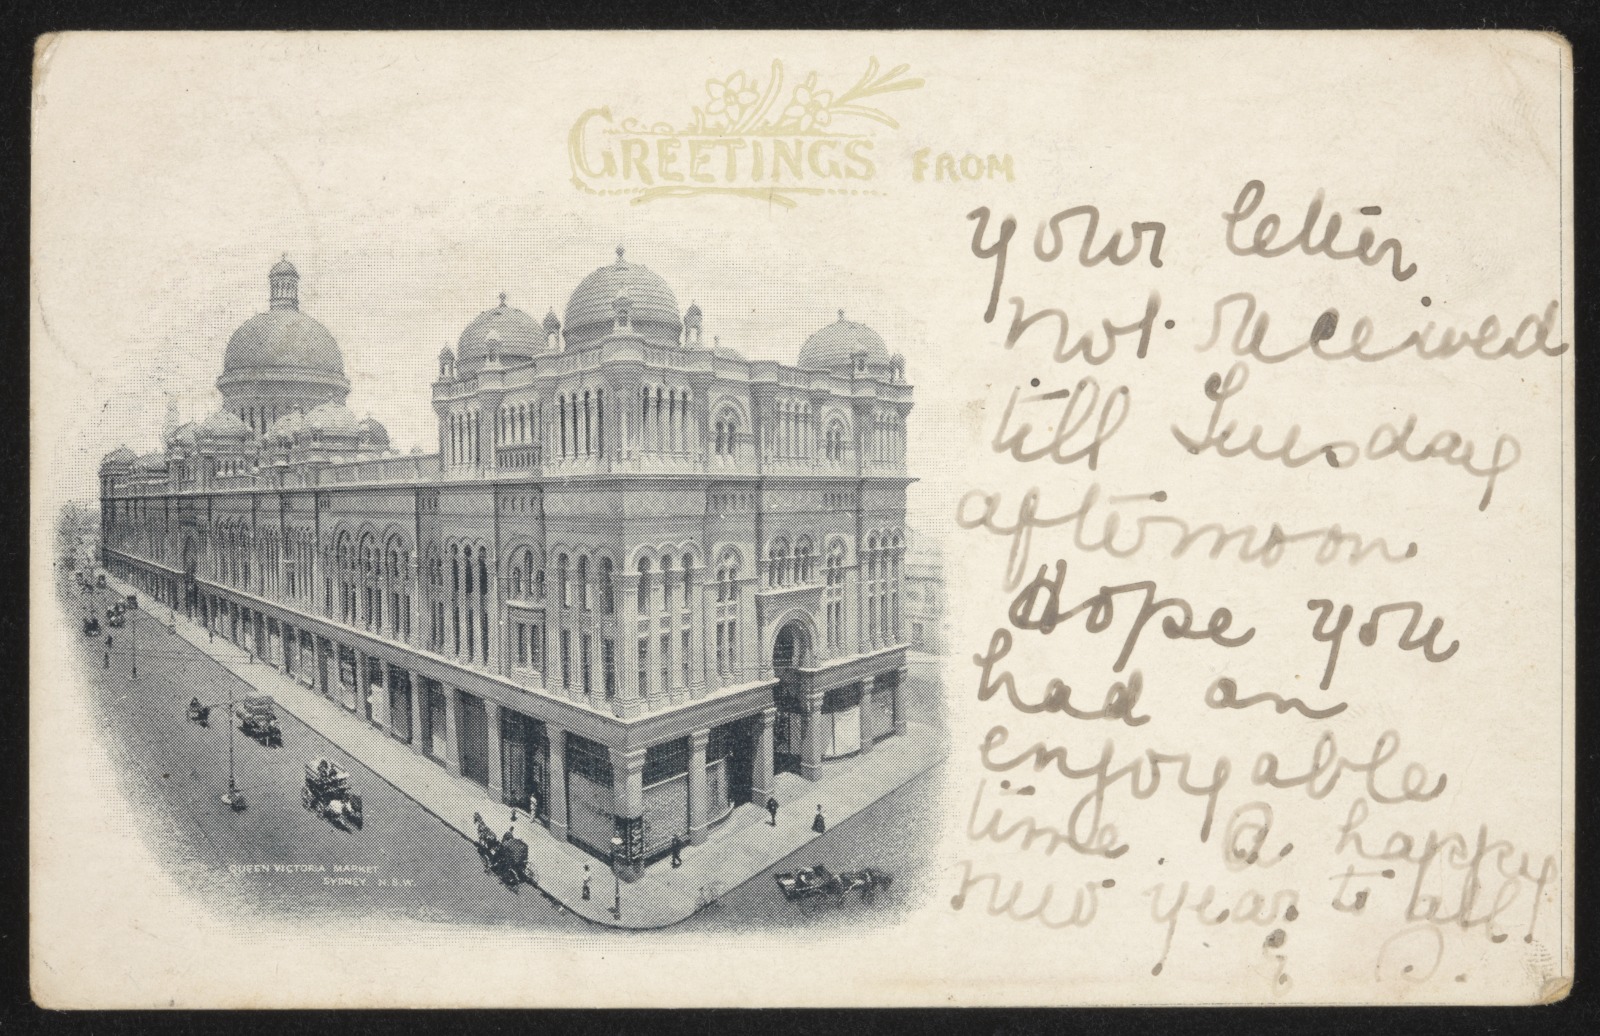 GREETINGS FROM
your letter
not received
till Tuesday
afternoon
Hope you
had an
enjoyable
time. A happy
new year to all!
QUEEN VICTORIA MARKET,
SYDNEY N.S.W.